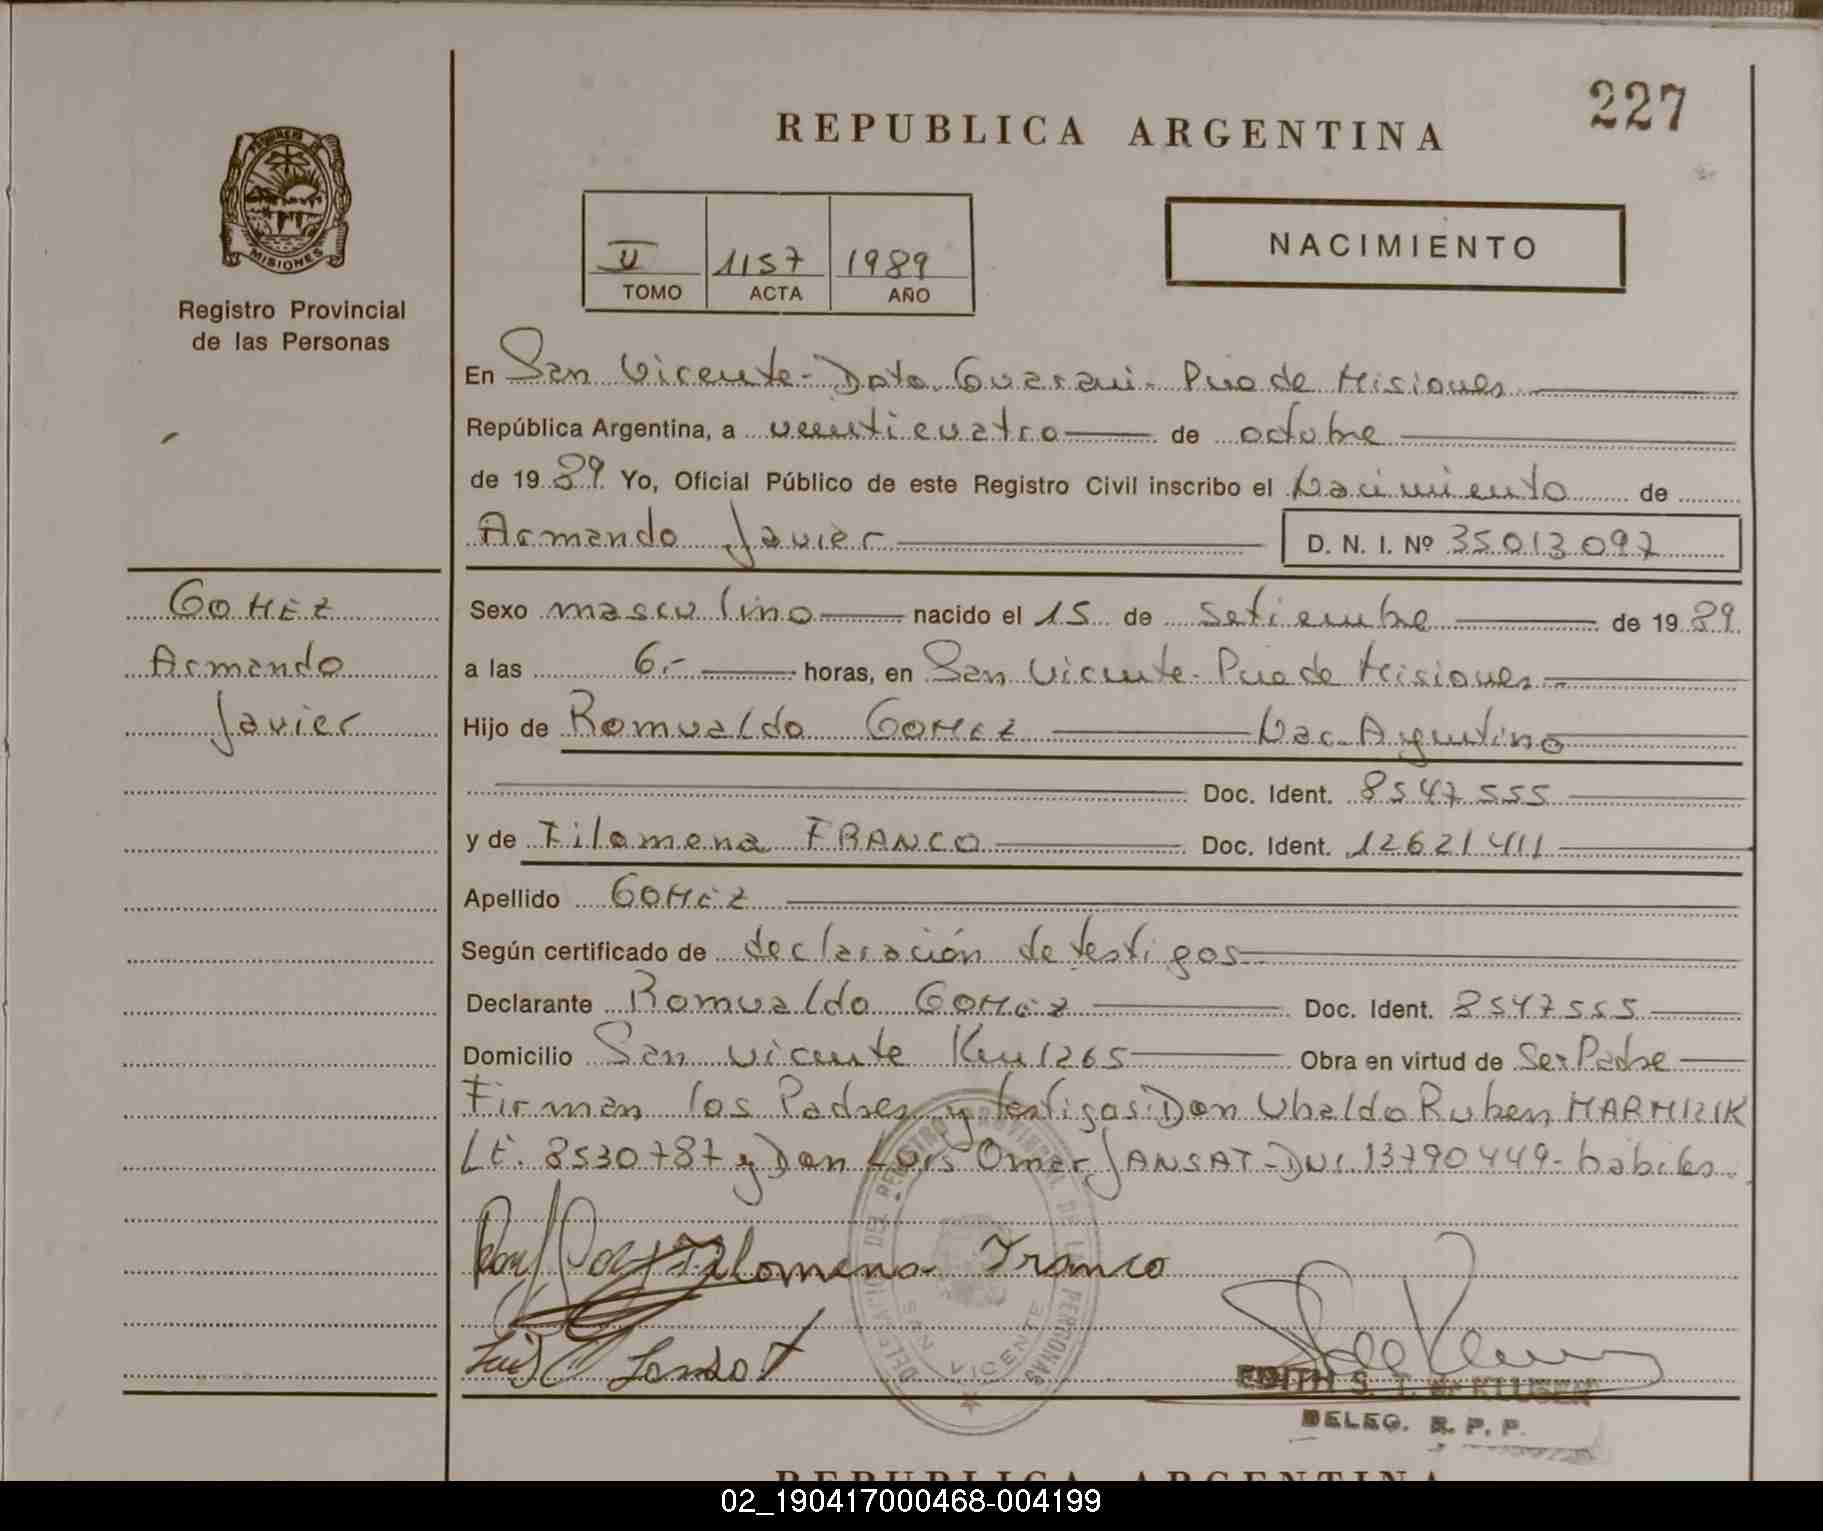 227
REPUBLICA ARGENTINA
PROVINCIA DE
MISIONES
Registro Provincial
de las Personas
II 1157 1989
TOMO ACTA AÑO
NACIMIENTO
En San Vicente - Dpto. Guarani - Pcia de Misiones
República Argentina, a veinticuatro de octubre
de 1989 Yo, Oficial Público de este Registro Civil inscribo el Nacimiento de
Armando Javier D. N. I. Nº 35013097
GOMEZ
Armando
Javier
Sexo masculino nacido el 15 de setiembre de 1989
a las 6.- horas, en San Vicente - Pcia de Misiones
Hijo de Romualdo GOMEZ Nac. Argentino
Doc. Ident. 8547555
y de Filomena FRANCO Doc. Ident. 12621411
Apellido GOMEZ
Según certificado de declaración de testigos
Declarante Romualdo GOMEZ Doc. Ident. 8547555
Domicilio San Vicente Km 1265 Obra en virtud de Ser Padre
Firman los Padres y testigos: Don Ubaldo Ruben MARMIZIK
LE. 8530787 y Don Luis Omar JANSAT - DNI. 13790449 - habiles.
Filomena Franco
Luis
DELEGACIÓN DEL REGISTRO PROVINCIAL DE LAS PERSONAS
SAN VICENTE
EDITH S. T. de KLUSEN
DELEG. R. P. P.
REPUBLICA ARGENTINA
02_190417000468-004199